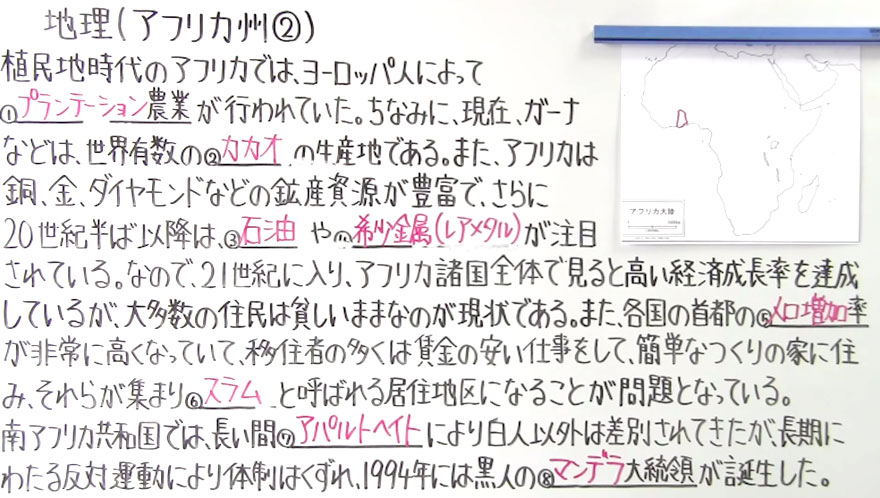 地理(アフリカ州②)
植民地時代のアフリカでは、ヨーロッパ人によって
①プランテーション農業が行われていた。ちなみに、現在、ガーナ
などは、世界有数の②カカオの生産地である。また、アフリカは
銅、金、ダイヤモンドなどの鉱産資源が豊富で、さらに
20世紀半ば以降は、③石油や④希少金属(レアメタル)が注目
されている。なので、21世紀に入り、アフリカ諸国全体で見ると高い経済成長率を達成
しているが、大多数の住民は貧しいままなのが現状である。また、各国の首都の⑤人口増加率
が非常に高くなっていて、移住者の多くは賃金の安い仕事をして、簡単なつくりの家に住
み、それらが集まり⑥スラムと呼ばれる居住地区になることが問題となっている。
南アフリカ共和国では、長い間⑦アパルトヘイトにより白人以外は差別されてきたが、長期に
わたる反対運動により体制はくずれ、1994年には黒人の⑧マンデラ大統領が誕生した。
アフリカ大陸